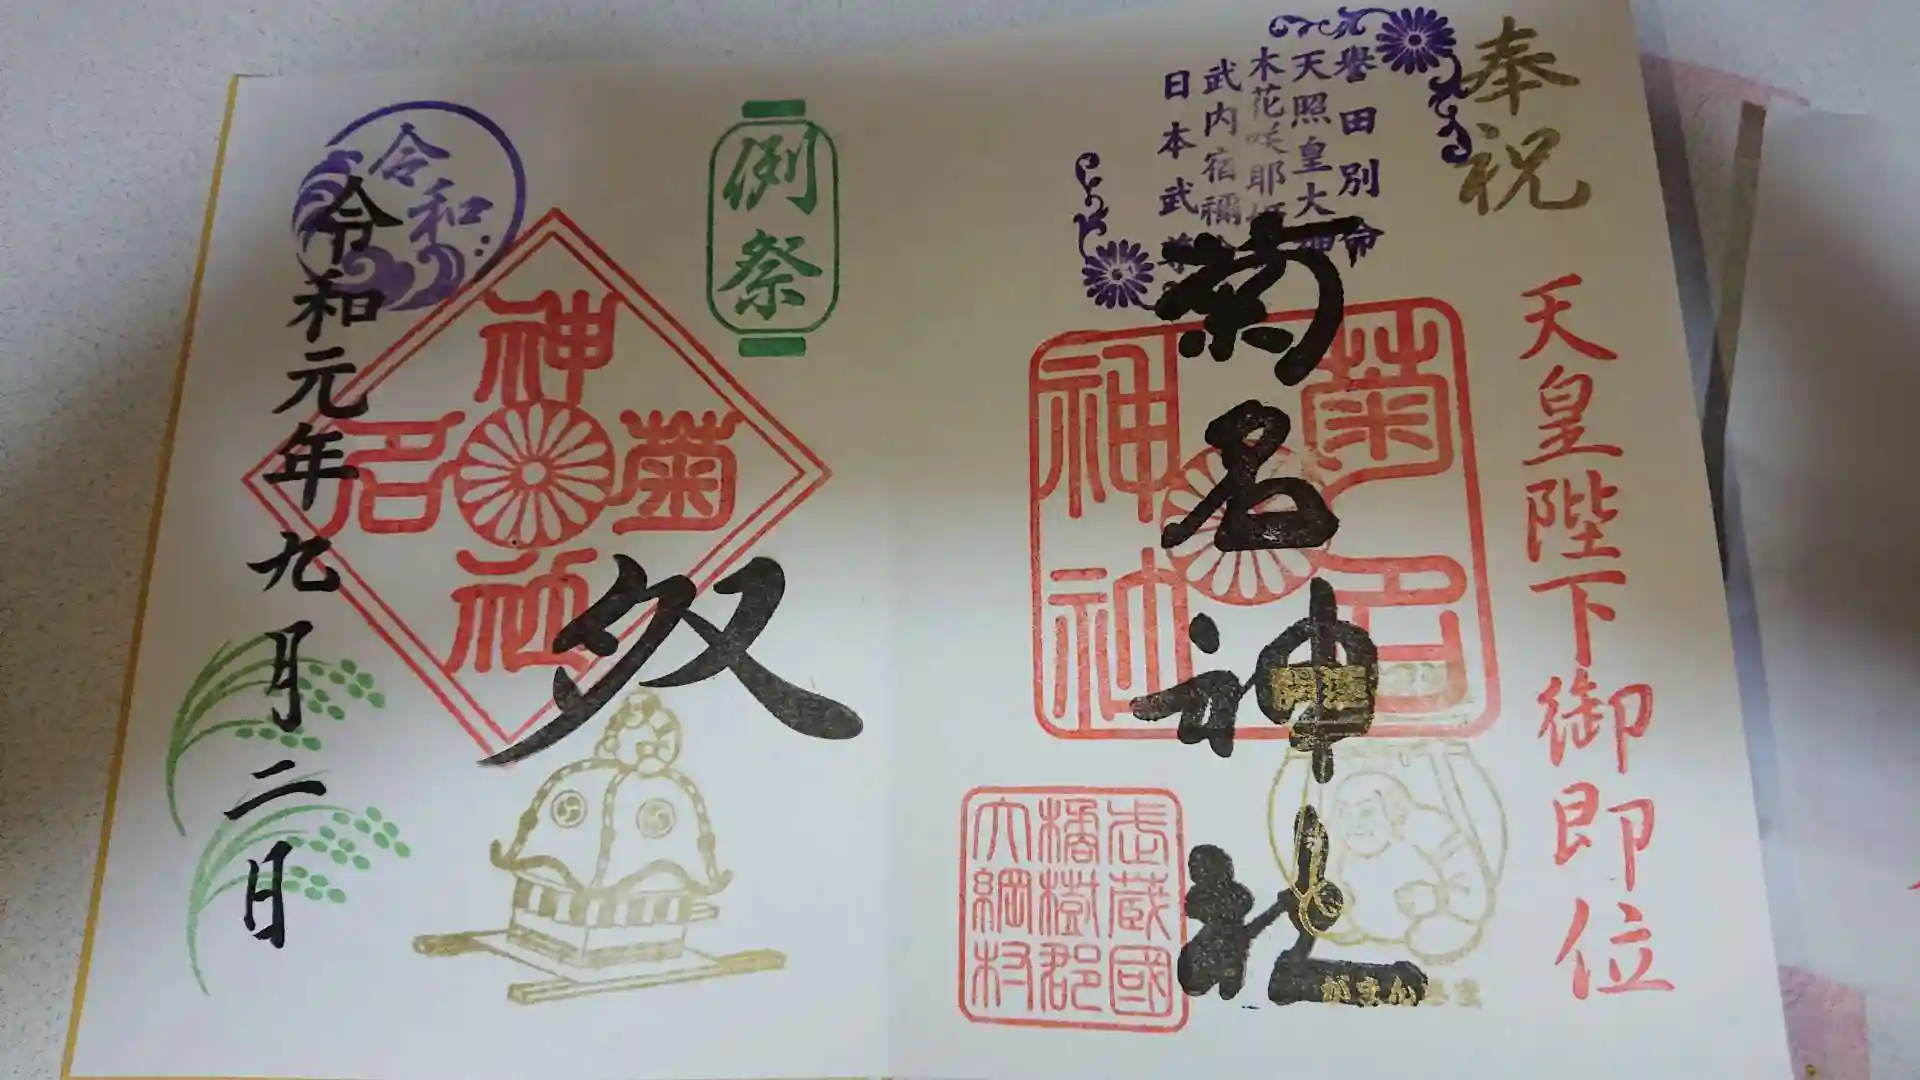 奉祝
天皇陛下御即位
譽田別命
天照皇大神
木花咲耶姫
武内宿禰
日本武尊
菊名神社
菊名
神社
開運
がまんさま
武蔵國
橘樹郡
大綱村
例祭
菊名
神社
令和
令和元年九月二日